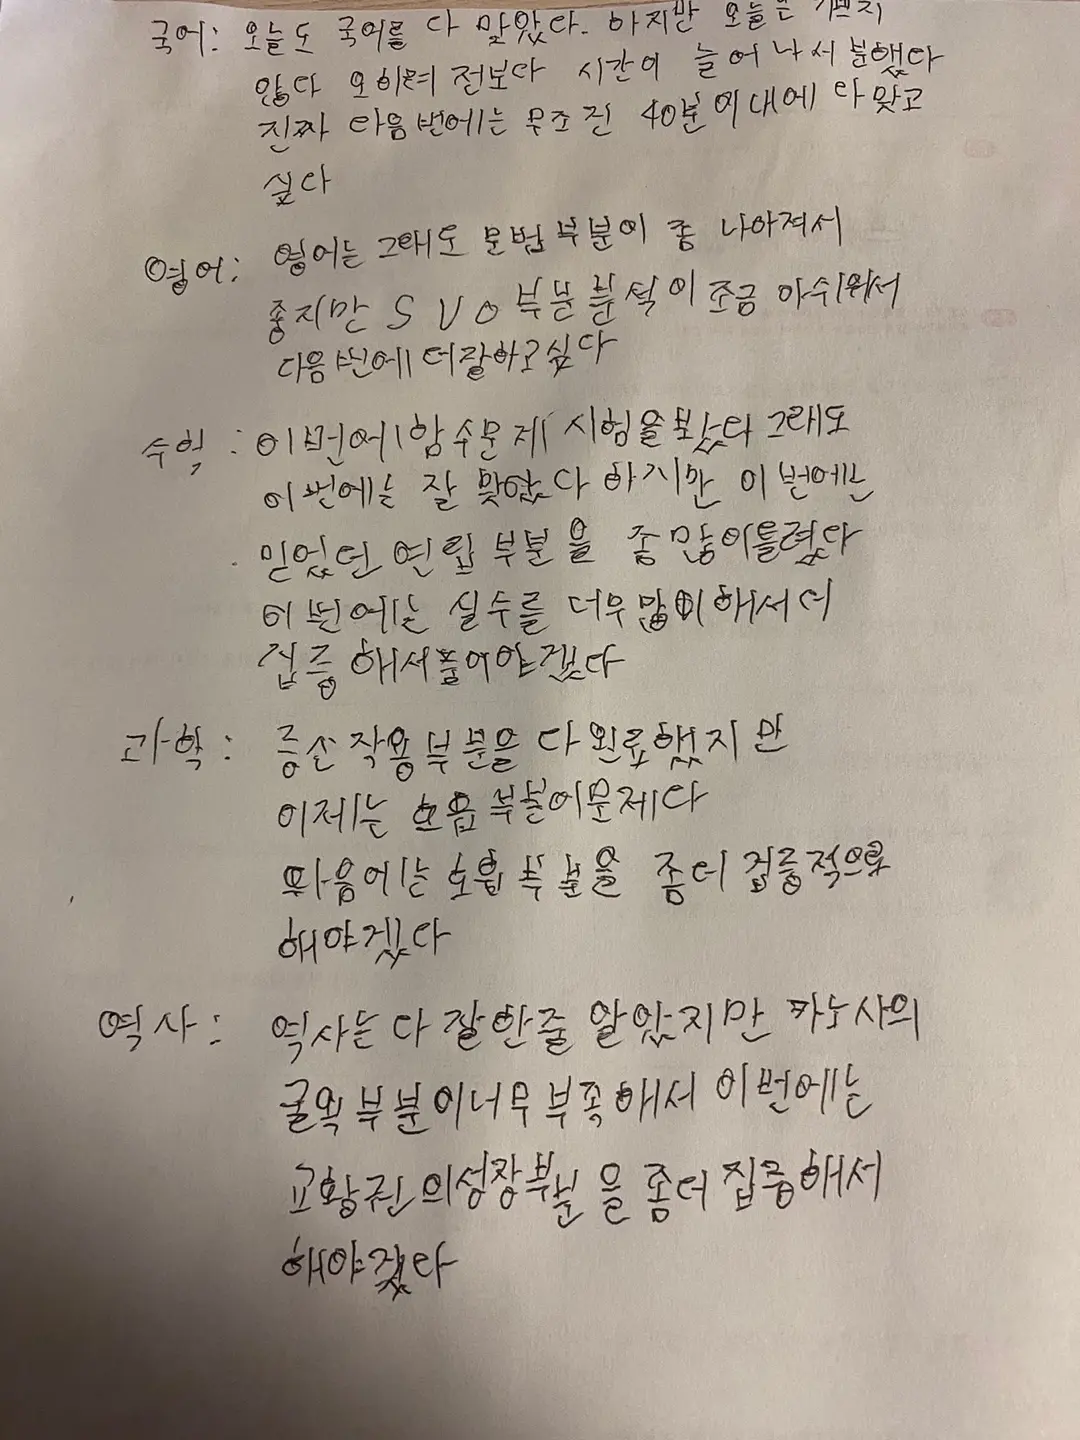 국어: 오늘도 국어를 다 맞았다. 하지만 오늘은 기쁘지
않다 오히려 전보다 시간이 늘어나서 분했다
진짜 다음번에는 무조건 40분이내에 다 맞고
싶다
영어: 영어는 그래도 문법 부분이 좀 나아져서
좋지만 S V O 부분 분석이 조금 아쉬워서
다음번에 더잘하고싶다
수학: 이번에 함수문제 시험을봤다 그래도
이번에는 잘 맞았다 하지만 이번에는
믿었던 연립 부분을 좀 많이틀렸다
이번에는 실수를 너무많이해서더
집중해서풀어야겠다
과학: 증산 작용부분을 다 완료했지만
이제는 호흡 부분이문제다
다음에는 호흡 부분을 좀더 집중적으로
해야겠다
역사: 역사는 다 잘한줄 알았지만 카노사의
굴욕 부분이너무 부족해서 이번에는
교황권의성장부분을 좀더 집중해서
해야겠다